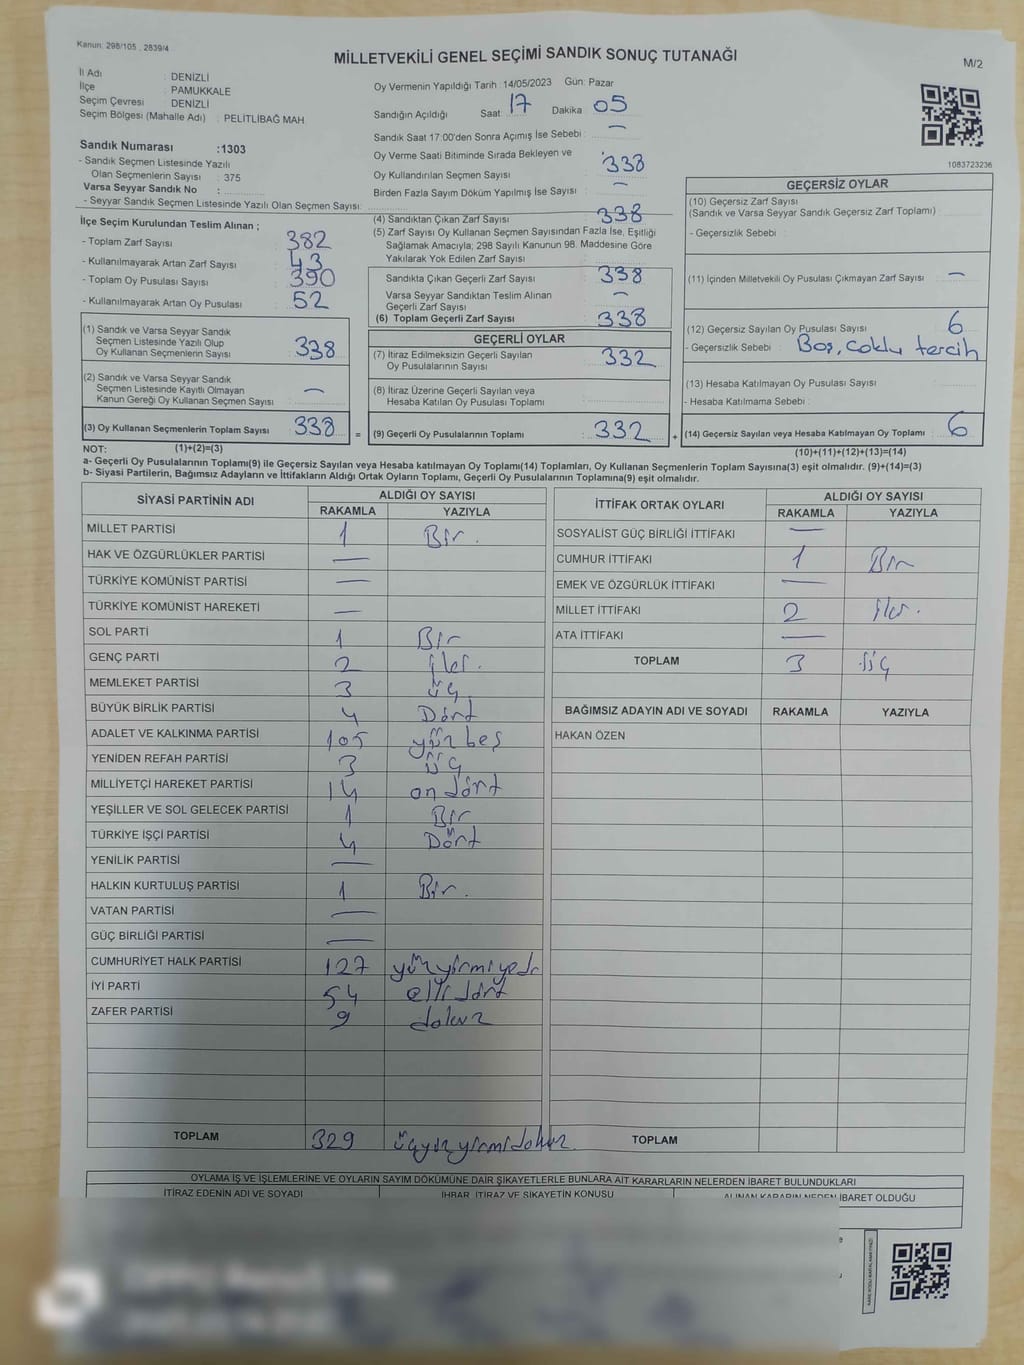 Kanun: 298/105 , 2839/4
MİLLETVEKİLİ GENEL SEÇİMİ SANDIK SONUÇ TUTANAĞI
M/2
İl Adı : DENİZLİ
İlçe : PAMUKKALE
Seçim Çevresi : DENİZLİ
Seçim Bölgesi (Mahalle Adı) : PELİTLİBAĞ MAH
Sandık Numarası :1303
- Sandık Seçmen Listesinde Yazılı
Olan Seçmenlerin Sayısı : 375
Varsa Seyyar Sandık No :
- Seyyar Sandık Seçmen Listesinde Yazılı Olan Seçmen Sayısı:
Oy Vermenin Yapıldığı Tarih : 14/05/2023 Gün: Pazar
Sandığın Açıldığı Saat : 17 Dakika : 05
Sandık Saat 17:00'den Sonra Açımış İse Sebebi : —
Oy Verme Saati Bitiminde Sırada Bekleyen ve
Oy Kullandırılan Seçmen Sayısı : 338
Birden Fazla Sayım Döküm Yapılmış İse Sayısı : —
1083723236
İlçe Seçim Kurulundan Teslim Alınan ;
- Toplam Zarf Sayısı : 382
- Kullanılmayarak Artan Zarf Sayısı : 43
- Toplam Oy Pusulası Sayısı : 390
- Kullanılmayarak Artan Oy Pusulası : 52
(1) Sandık ve Varsa Seyyar Sandık
Seçmen Listesinde Yazılı Olup
Oy Kullanan Seçmenlerin Sayısı : 338
(2) Sandık ve Varsa Seyyar Sandık
Seçmen Listesinde Kayıtlı Olmayan
Kanun Gereği Oy Kullanan Seçmen Sayısı : —
(3) Oy Kullanan Seçmenlerin Toplam Sayısı : 338
(4) Sandıktan Çıkan Zarf Sayısı : 338
(5) Zarf Sayısı Oy Kullanan Seçmen Sayısından Fazla İse, Eşitliği
Sağlamak Amacıyla; 298 Sayılı Kanunun 98. Maddesine Göre
Yakılarak Yok Edilen Zarf Sayısı :
Sandıkta Çıkan Geçerli Zarf Sayısı : 338
Varsa Seyyar Sandıktan Teslim Alınan
Geçerli Zarf Sayısı : —
(6) Toplam Geçerli Zarf Sayısı : 338
GEÇERLİ OYLAR
(7) İtiraz Edilmeksizin Geçerli Sayılan
Oy Pusulalarının Sayısı : 332
(8) İtiraz Üzerine Geçerli Sayılan veya
Hesaba Katılan Oy Pusulası Toplamı :
= (9) Geçerli Oy Pusulalarının Toplamı : 332 +
GEÇERSİZ OYLAR
(10) Geçersiz Zarf Sayısı
(Sandık ve Varsa Seyyar Sandık Geçersiz Zarf Toplamı) :
- Geçersizlik Sebebi :
(11) İçinden Milletvekili Oy Pusulası Çıkmayan Zarf Sayısı : —
(12) Geçersiz Sayılan Oy Pusulası Sayısı : 6
- Geçersizlik Sebebi : Boş, çoklu tercih
(13) Hesaba Katılmayan Oy Pusulası Sayısı :
- Hesaba Katılmama Sebebi :
(14) Geçersiz Sayılan veya Hesaba Katılmayan Oy Toplamı : 6
NOT: (1)+(2)=(3)
(10)+(11)+(12)+(13)=(14)
a- Geçerli Oy Pusulalarının Toplamı(9) ile Geçersiz Sayılan veya Hesaba katılmayan Oy Toplamı(14) Toplamları, Oy Kullanan Seçmenlerin Toplam Sayısına(3) eşit olmalıdır. (9)+(14)=(3)
b- Siyasi Partilerin, Bağımsız Adayların ve İttifakların Aldığı Ortak Oyların Toplamı, Geçerli Oy Pusulalarının Toplamına(9) eşit olmalıdır.
SİYASİ PARTİNİN ADI ALDIĞI OY SAYISI
RAKAMLA YAZIYLA
MİLLET PARTİSİ 1 Bir.
HAK VE ÖZGÜRLÜKLER PARTİSİ —
TÜRKİYE KOMÜNİST PARTİSİ —
TÜRKİYE KOMÜNİST HAREKETİ —
SOL PARTİ 1 Bir
GENÇ PARTİ 2 iki.
MEMLEKET PARTİSİ 3 üç
BÜYÜK BİRLİK PARTİSİ 4 Dört
ADALET VE KALKINMA PARTİSİ 105 yüz beş
YENİDEN REFAH PARTİSİ 3 üç
MİLLİYETÇİ HAREKET PARTİSİ 14 on dört
YEŞİLLER VE SOL GELECEK PARTİSİ 1 Bir
TÜRKİYE İŞÇİ PARTİSİ 4 Dört
YENİLİK PARTİSİ —
HALKIN KURTULUŞ PARTİSİ 1 Bir.
VATAN PARTİSİ —
GÜÇ BİRLİĞİ PARTİSİ —
CUMHURİYET HALK PARTİSİ 127 yüz yirmi yedi
İYİ PARTİ 54 elli dört
ZAFER PARTİSİ 9 dokuz
TOPLAM 329 üçyüz yirmi dokuz.
İTTİFAK ORTAK OYLARI ALDIĞI OY SAYISI
RAKAMLA YAZIYLA
SOSYALİST GÜÇ BİRLİĞİ İTTİFAKI —
CUMHUR İTTİFAKI 1 Bir
EMEK VE ÖZGÜRLÜK İTTİFAKI —
MİLLET İTTİFAKI 2 iki.
ATA İTTİFAKI —
TOPLAM 3 üç
BAĞIMSIZ ADAYIN ADI VE SOYADI RAKAMLA YAZIYLA
HAKAN ÖZEN
TOPLAM
OYLAMA İŞ VE İŞLEMLERİNE VE OYLARIN SAYIM DÖKÜMÜNE DAİR ŞİKAYETLERLE BUNLARA AİT KARARLARIN NELERDEN İBARET BULUNDUKLARI
İTİRAZ EDENİN ADI VE SOYADI İHBAR, İTİRAZ VE ŞİKAYETİN KONUSU ALINAN KARARIN NEDEN İBARET OLDUĞU